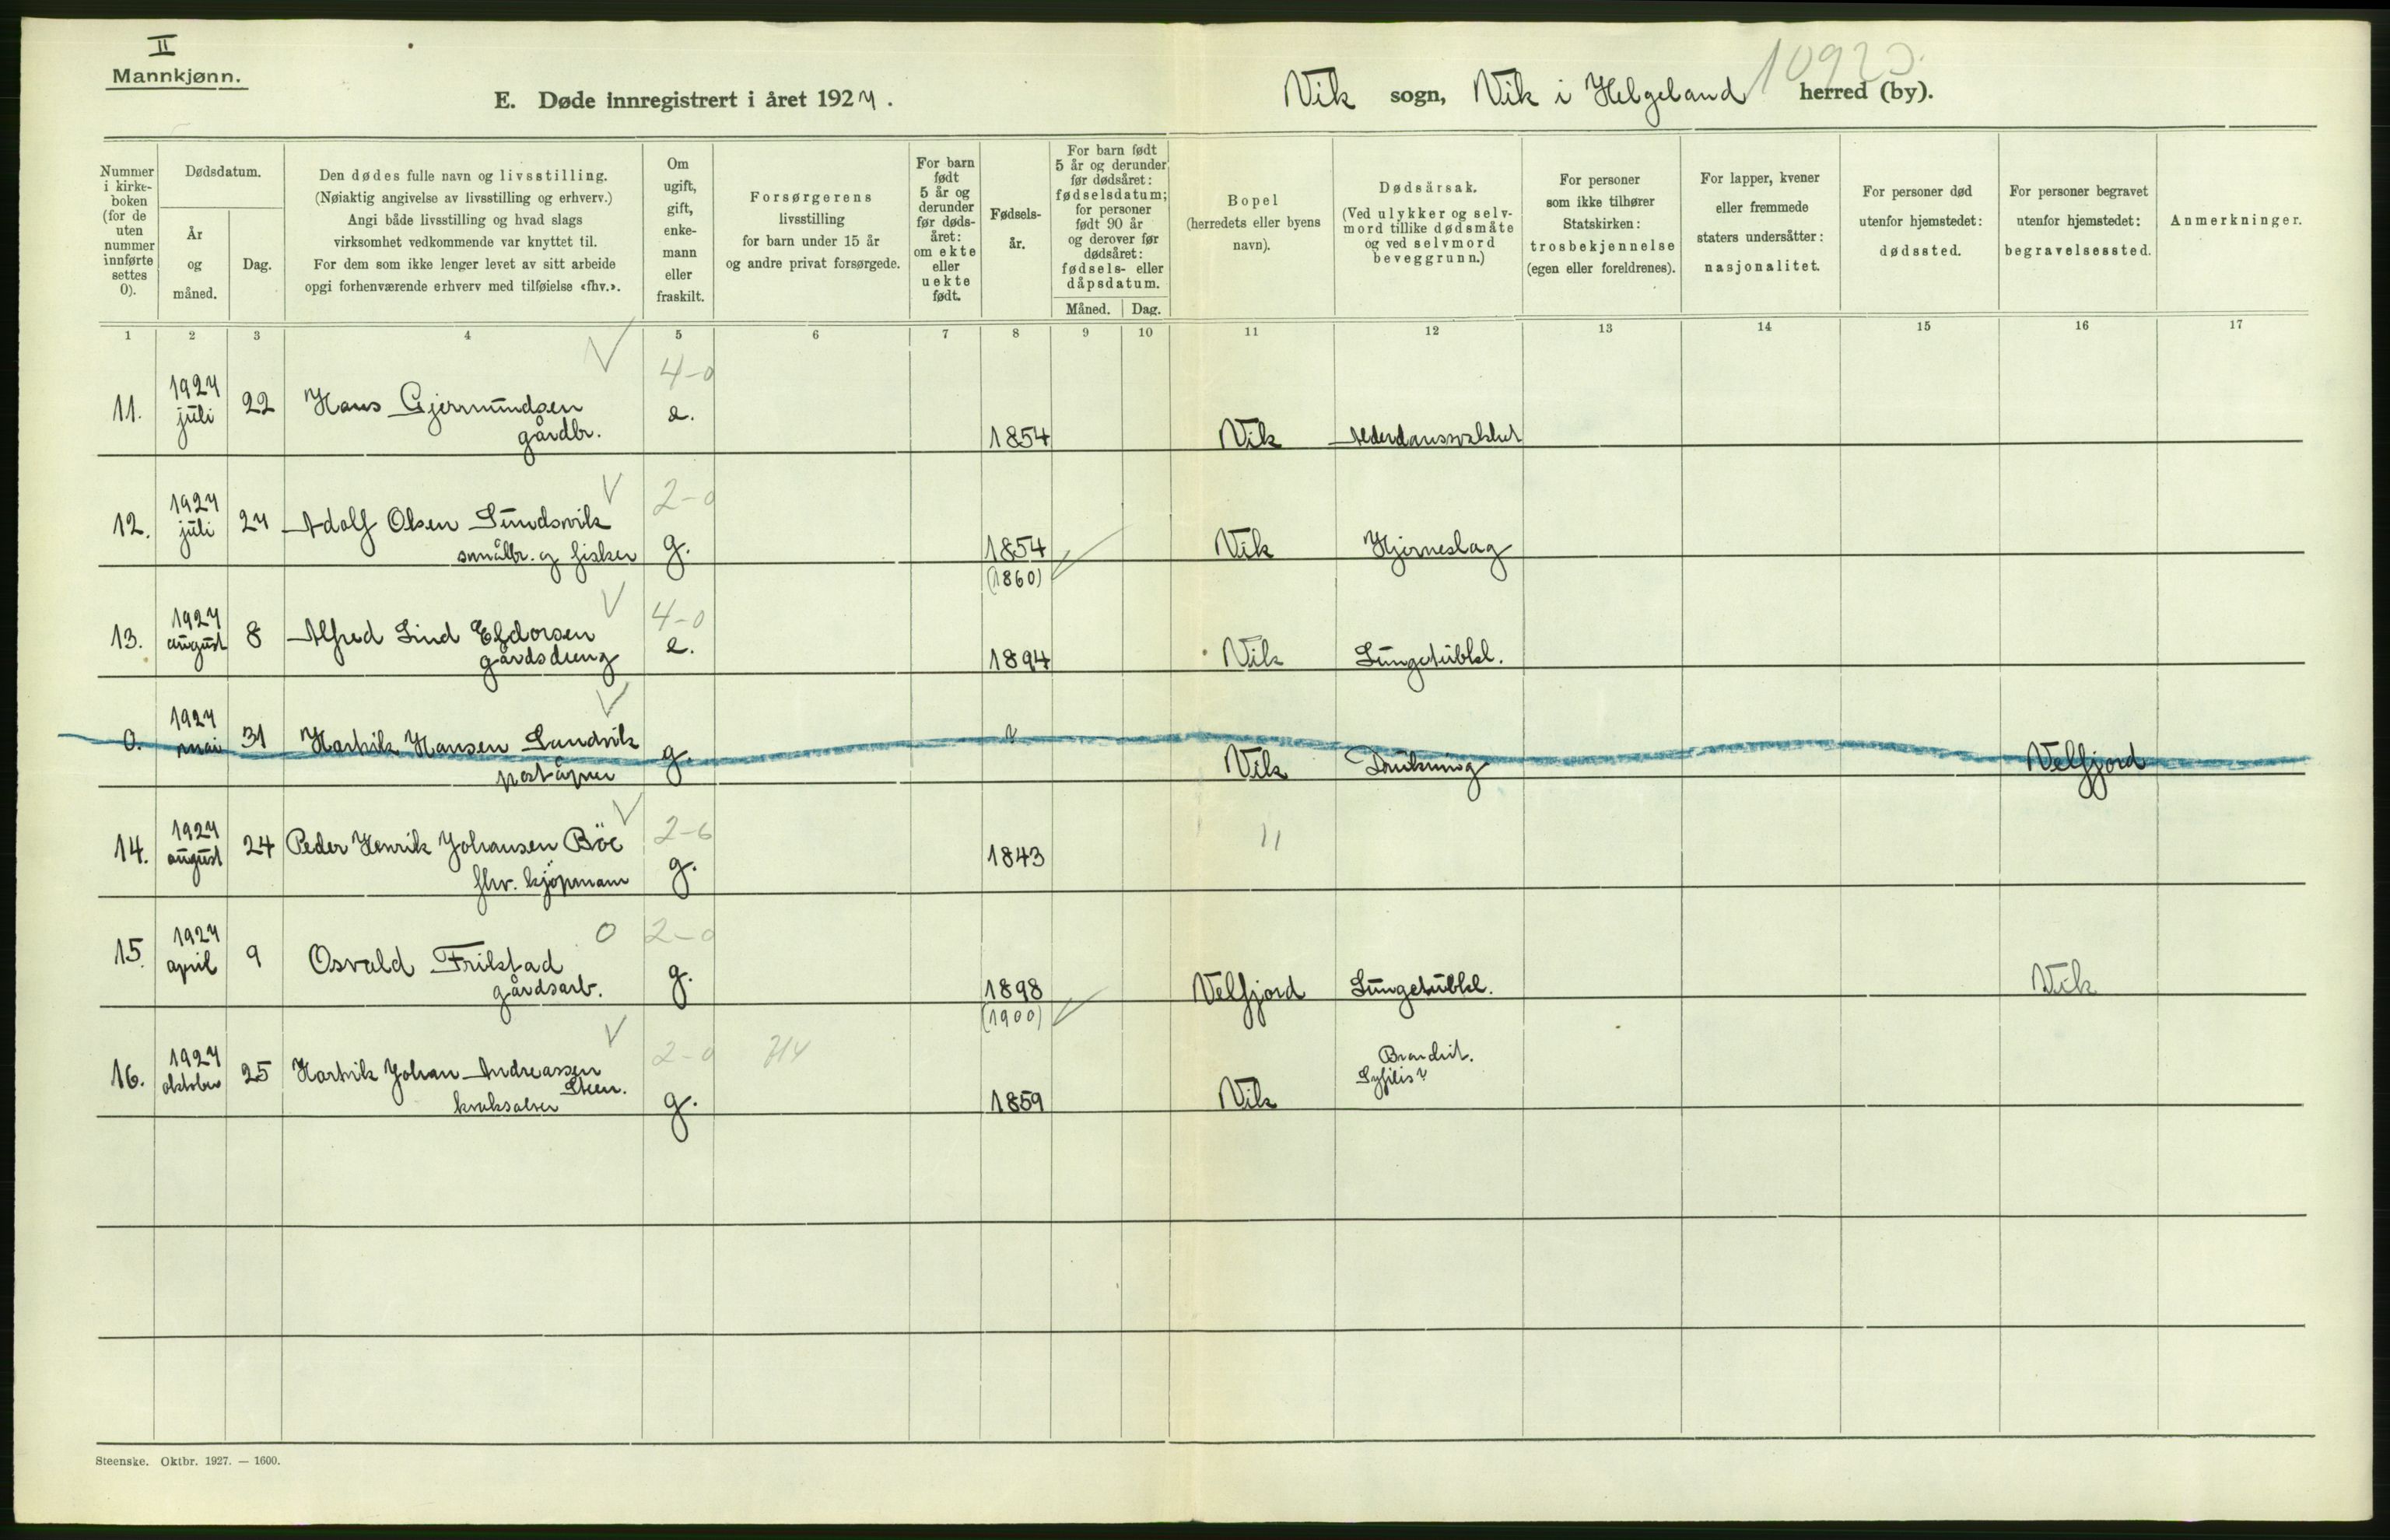 II
Mannkjønn.
E. Døde innregistrert i året 1927.
Vik sogn, Vik i Helgeland herred (by).
Nummer
i kirke-
boken
(for de
uten
nummer
innførte
settes
0).
Dødsdatum.
År
og
måned.
Dag.
Den dødes fulle navn og livsstilling.
(Nøiaktig angivelse av livsstilling og erhverv.)
Angi både livsstilling og hvad slags
virksomhet vedkommende var knyttet til.
For dem som ikke lenger levet av sitt arbeide
opgi forhenværende erhverv med tilføielse «fhv.».
Om
ugift,
gift,
enke-
mann
eller
fraskilt.
Forsørgerens
livsstilling
for barn under 15 år
og andre privat forsørgede.
For barn
født
5 år og
derunder
før døds-
året:
om ekte
eller
uekte
født.
Fødsels-
år.
For barn født
5 år og derunder
før dødsåret:
fødselsdatum;
for personer
født 90 år
og derover før
dødsåret:
fødsels- eller
dåpsdatum.
Måned. Dag.
Bopel
(herredets eller byens
navn).
Dødsårsak.
(Ved ulykker og selv-
mord tillike dødsmåte
og ved selvmord
beveggrunn.)
For personer
som ikke tilhører
Statskirken:
trosbekjennelse
(egen eller foreldrenes).
For lapper, kvener
eller fremmede
staters undersåtter:
nasjonalitet.
For personer død
utenfor hjemstedet:
dødssted.
For personer begravet
utenfor hjemstedet:
begravelsessted.
Anmerkninger.
1 2 3 4 5 6 7 8 9 10 11 12 13 14 15 16 17
4-0
11. 1927 juli 22 Hans Gjermundsen e.
gårdbr. 1854 Vik
2-0
12. 1927 juli 27 Adolf Olsen Sundsvik
småbr. og fisker g. 1854 Vik Hjerneslag
(1860)
4-0
13. 1927 august 8 Alfred Lind Eldorsen e.
gårdsdreng 1894 Vik Lungetubkl.
0. 1927 mai 31 Hartvik Hansen Sandvik g.
poståpner Vik Drukning Velfjord
2-6
14. 1927 august 24 Peder Henrik Johansen Böe 1843 11
fhv. kjöpmann g.
0 2-0
15. 1927 april 9 Osvald Frilstad g.
gårdsarb. 1898 Velfjord Lungetubkl. Vik
(1900)
2-0 714
16. 1927 oktober 25 Hartvik Johan Andreassen
Steen.
kvaksalver g. 1859 Vik
Syfilis?
Steenske. Oktbr. 1927. — 1600.